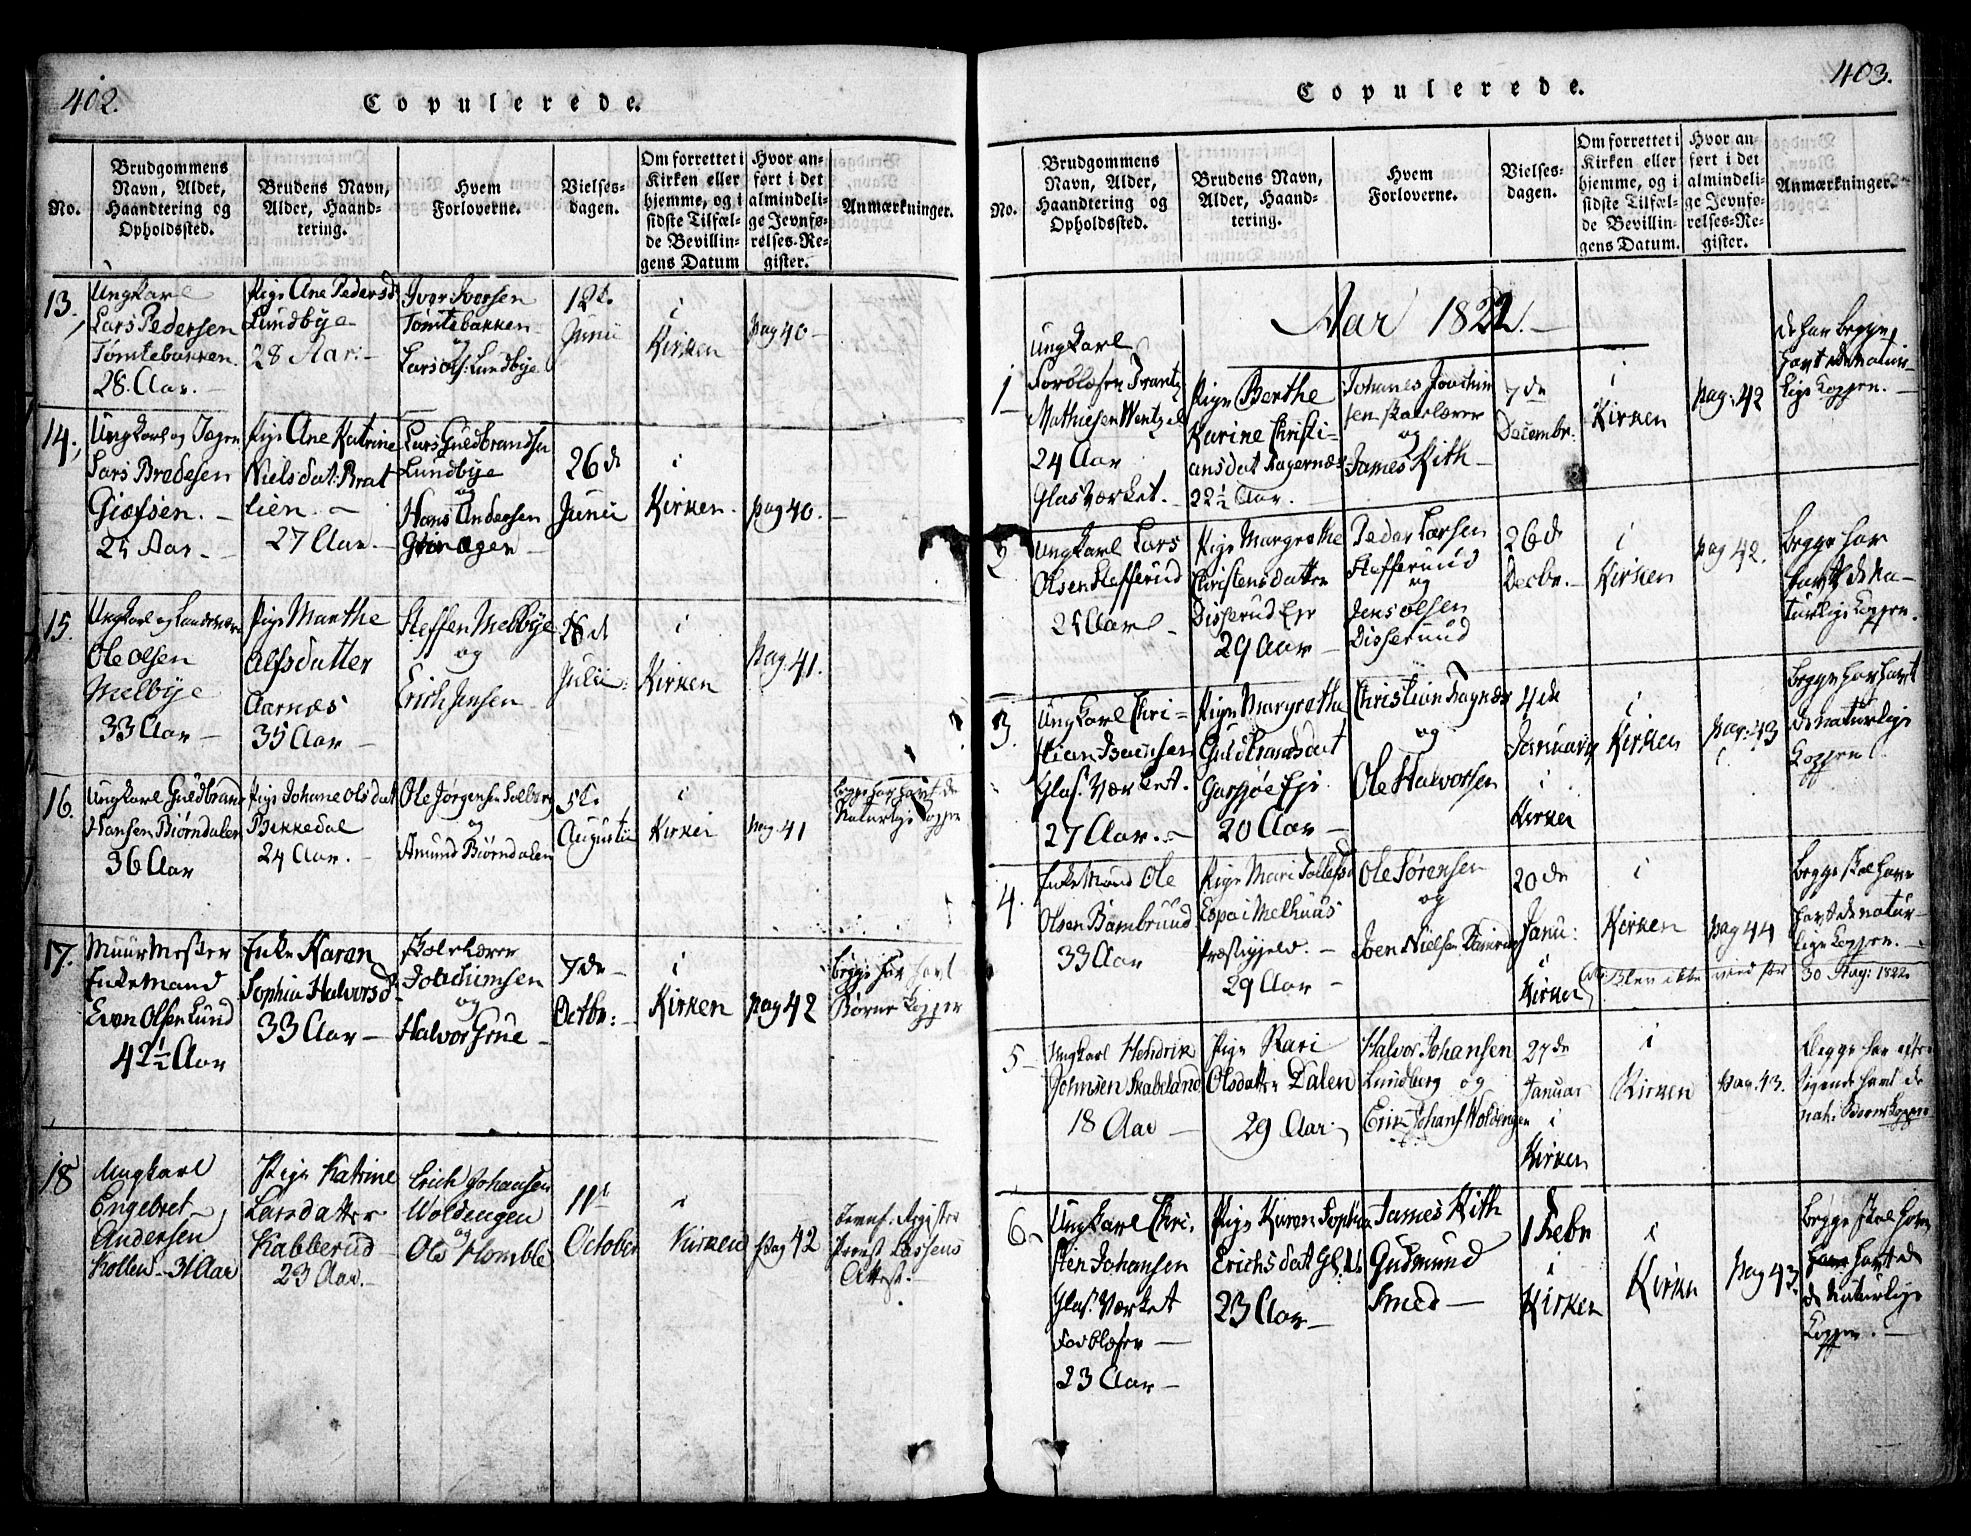 402.
Copulerede.
No.
Brudgommens
Navn, Alder,
Haandtering og
Opholdssted.
Brudens Navn,
Alder, Haand-
tering.
Hvem
Forloverne.
Vielses-
dagen.
Om forrettet i
Kirken eller
hjemme, og i
sidste Tilfæl-
de Bevillin-
gens Datum
Hvor an-
ført i det
almindeli-
ge Jevnfø-
relses-Re-
gister.
Anmærkninger.
13.
Ungkarl
Lars Pedersen
Tømtebakken
28. Aar.
Pige Ane Pedersd.
Lundbye
28 Aar.
Iver Iversen
Tømtebakken
og
Lars Ols: Lundbye
12te
Junii
i
Kirken
pag 40
14.
Ungkarl og
Lars Bredesen
Aar
Pige Ane Katrine
Nielsdat: Brat
lien.
27 Aar.
Lars Guldbrandsen
Lundbye
og
Hans Andersen
26de
Junii
i
Kirken.
pag 40.
15.
Ungkarl og
Ole Olsen
Melbye
33 Aar
Pige Marthe
Alfsdatter
Aarnæs
35 Aar
Steffen Melbye
og
Erich Jensen
28de
Julii
i
Kirken
pag. 41.
16.
Ungkarl Guldbrand
Hansen Biørndalen
36 Aar
Pige Johane Olsdat
Bekkedal
24 Aar.
Ole Jørgensen Solberg
og
Amund Biørndalen
5te
Augustii
i
Kirken
pag. 41
begge har havt de
Naturlige Kopper
17.
Muurmester
Enkemand
Even Olsen Lund
42½ Aar
Enke Karen
Sophia Halvorsd.
33 Aar
Skolelærer
Joachimsen
og
Halvor Grue
7de
Octbr:
i
Kirken
pag 42
begge har havt
Børnekopper
18
Ungkarl
Engebret
Andersen
Kollen 31 Aar
Pige Katrine
Larsdatter
Kabberud
23 Aar.
Erich Johansen
Woldengen
og
Ole Homble
11te
October
i
Kirken
Pag 42
Jevnf. Register
Præst Lassens
Attest.
403.
Copulerede.
No.
Brudgommens
Navn, Alder,
Haandtering og
Opholdssted.
Brudens Navn,
Alder, Haand-
tering.
Hvem
Forloverne.
Vielses-
dagen.
Om forrettet i
Kirken eller
hjemme, og i
sidste Tilfæl-
de Bevillin-
gens Datum.
Hvor an-
ført i det
almindeli-
ge Jevnfø-
relses-Re-
gister.
Anmærkninger.
Aar 1822.
1
Ungkarl
Frantz
Mathiesen Wentzel
24 Aar
Glasværket.
Pige Berthe
Karine Christi-
ansdat Aagernæs
22½ Aar.
Johanes Joachim
sen skolelærer
og
James Kith
7de
Decembr.
i
Kirken
pag. 42
de har begge
havt de natur-
lige Kopper.
2
Ungkarl Lars
Olsen Stefferud
Aar
Pige Margrethe
Christensdatter
Disserud Eje
29 Aar
Peder Larsen
Stefferuud
og
Jens Olsen
Disseruud
26de
Decbr.
i
Kirken
pag 42.
begge har
havt de Na-
turlige Kopper.
3.
Ungkarl Chri-
stian
Glas. Værket.
27 Aar.
Pige Margrethe
Guldbrandsdat
Garsjøe Eje
20 Aar
Christian
og
Ole Halvorsen
4de
Januarii
i
Kirken
i
Kirken
pag: 43
begge har havt
de naturlige
Kopper
4.
Enkemand Ole
Olsen Bambruud
33 Aar
Pige Mari Tollefsd
Espa i Melhuus
Præstegjeld.
29 Aar
Ole Sørensen
og
Joen Nielsen
20de
Janu:
i
Kirken
i
Kirken
pag 44
begge skal have
havt de natur-
lige Kopper.
Blev ikke viet før
30 Aug: 1822.
5
Ungkarl Hendrik
Johnsen Skabeland
18 Aar
Pige Kari
Olsdatter Dalen
29 Aar.
Halvor Johansen
Lundberg og
Erik Johans Woldengen
27de
Januar
i
Kirken
i
Kirken
Pag. 43.
Begge har efter
sigende havt de
nat: Børnekopper
6
Ungkarl Chri-
sten Johansen
Glas. Værket
23 Aar
Pige Karen Sophie
Erichsdat Gl: V.
23 Aar
James Kith
Gudmund
Smed
1 Febr
i
Kirken
i
Kirken
Pag 43.
begge skal have
havt de
de Naturlige
Kopper.